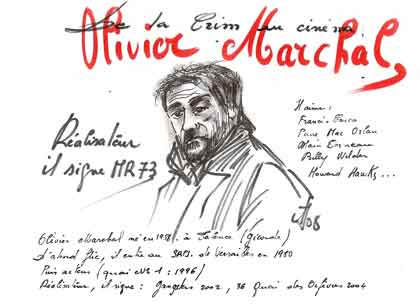 De la Crim au cinéma
Olivier Marchal
Il aime :
Francis Carco
Pierre Mac Orlan
Alain Corneau
Billy Wilder
Howard Hawks...
Réalisateur
il signe MR 73
08
Olivier Marchal né en 1958 à Talence (Gironde)
d'abord flic, il entre au SRPJ de Versailles en 1980
Puis acteur (quai N° 1 : 1996)
Réalisateur, il signe : Gangsters 2002, 36 Quai des Orfèvres 2004